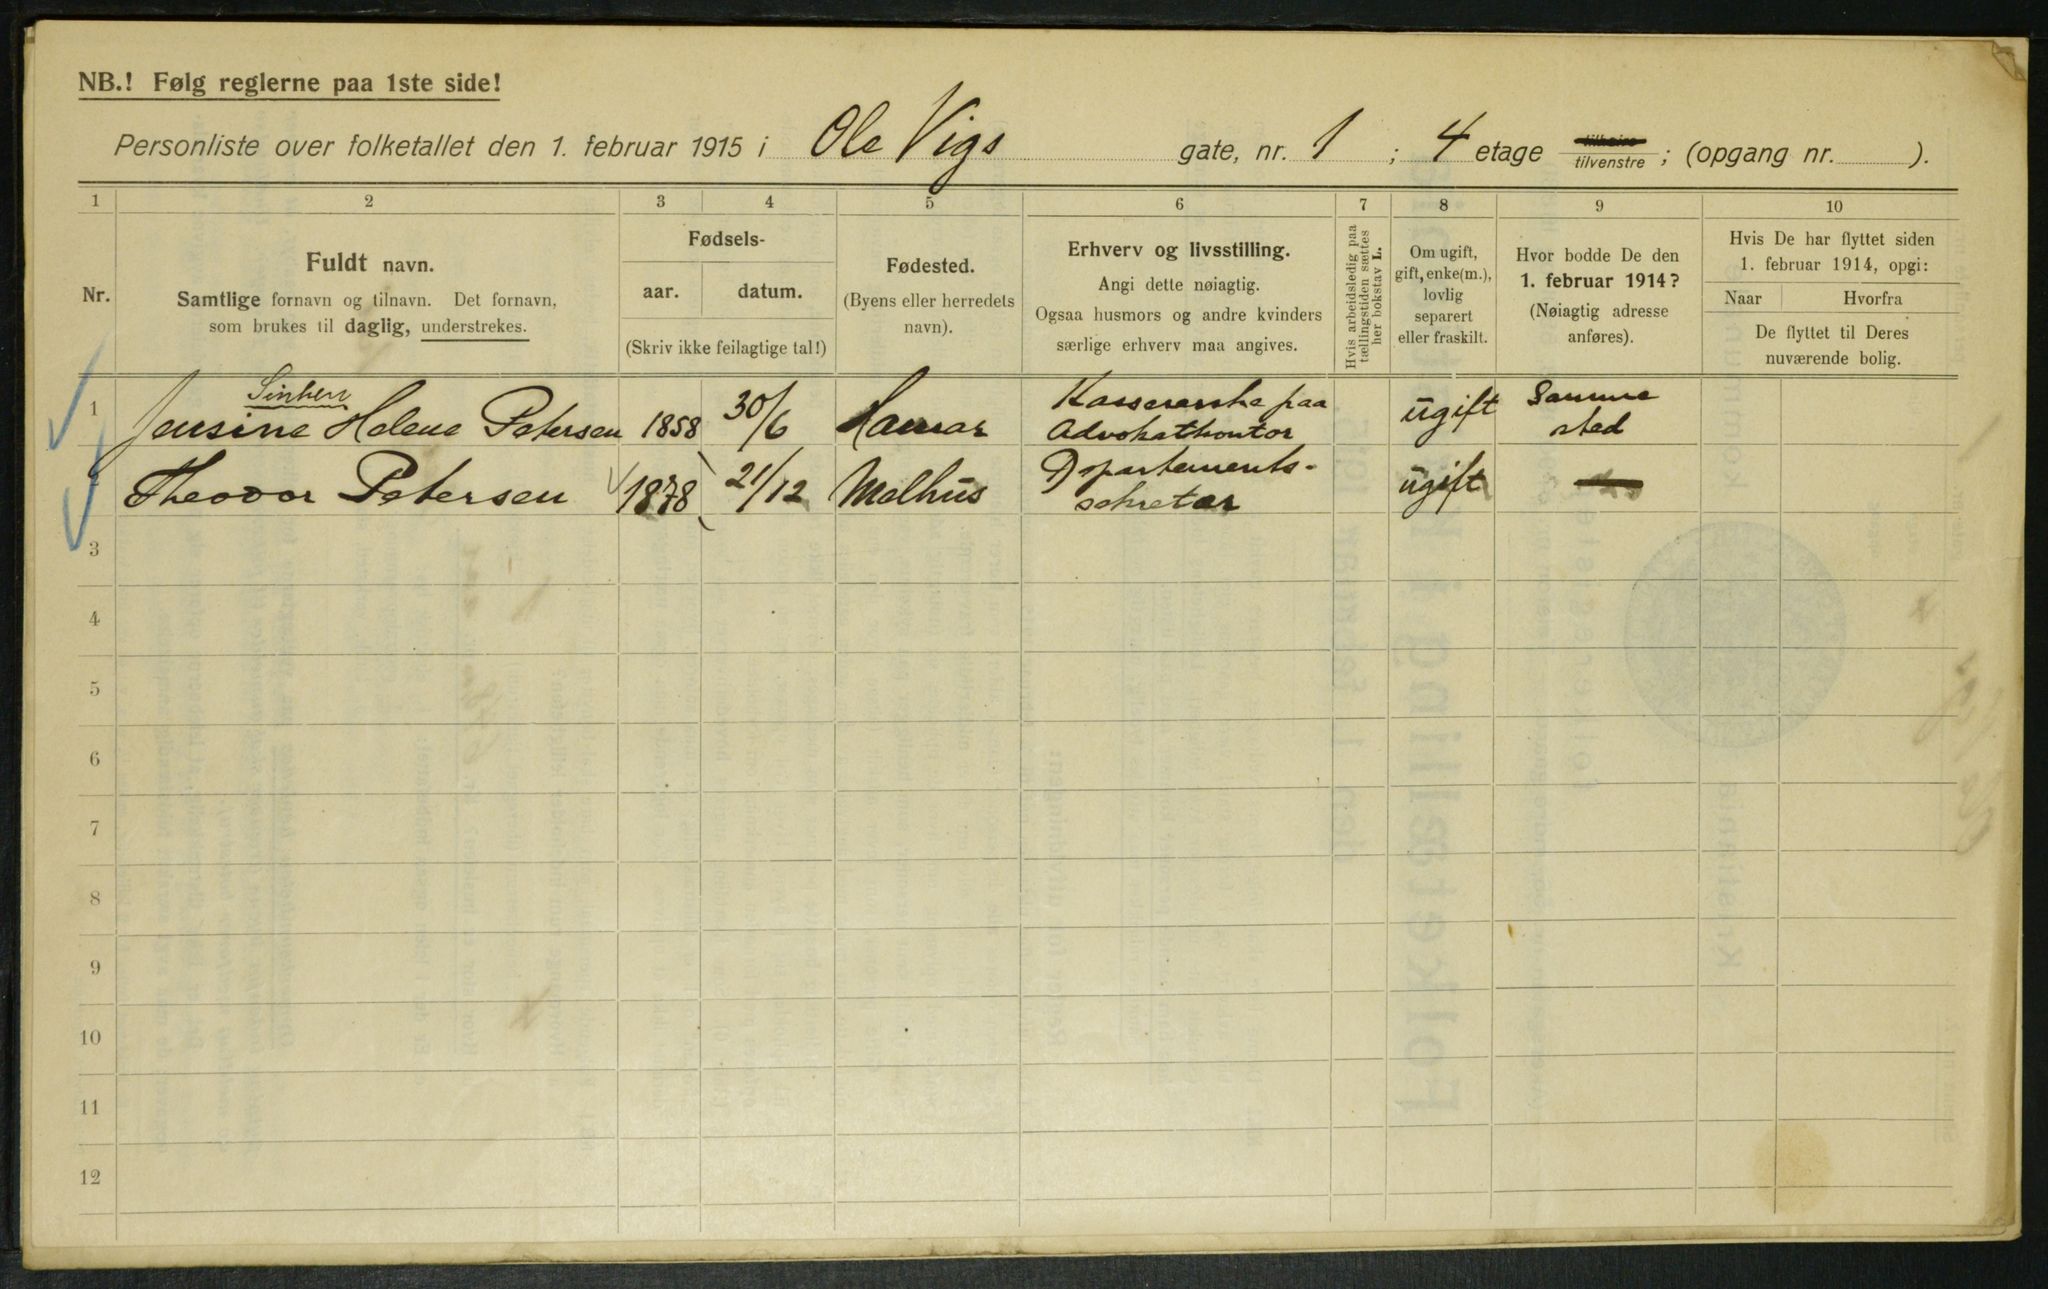 NB.! Følg reglerne paa 1ste side!
Personliste over folketallet den 1. februar 1915 i Ole Vigs gate, nr. 1 ; 4 etage tilhøire tilvenstre ; (opgang nr. ).
1 2 3 4 5 6 7 8 9 10
Nr.
Fuldt navn.
Samtlige fornavn og tilnavn. Det fornavn,
som brukes til daglig, understrekes.
Fødsels-
aar. datum.
(Skriv ikke feilagtige tal!)
Fødested.
(Byens eller herredets
navn).
Erhverv og livsstilling.
Angi dette nøiagtig.
Ogsaa husmors og andre kvinders
særlige erhverv maa angives.
Hvis arbeidsledig paa
tællingstiden sættes
her bokstav L.
Om ugift,
gift, enke(m.),
lovlig
separert
eller fraskilt.
Hvor bodde De den
1. februar 1914?
(Nøiagtig adresse
anføres).
Hvis De har flyttet siden
1. februar 1914, opgi:
Naar Hvorfra
De flyttet til Deres
nuværende bolig.
1 Jensine Helene Petersen 1858 30/6 Hamar Kassererske paa Advokatkontor ugift Samme sted
2 Theodor Petersen 1878 21/12 Melhus Departements- sekretær ugift
3
4
5
6
7
8
9
10
11
12